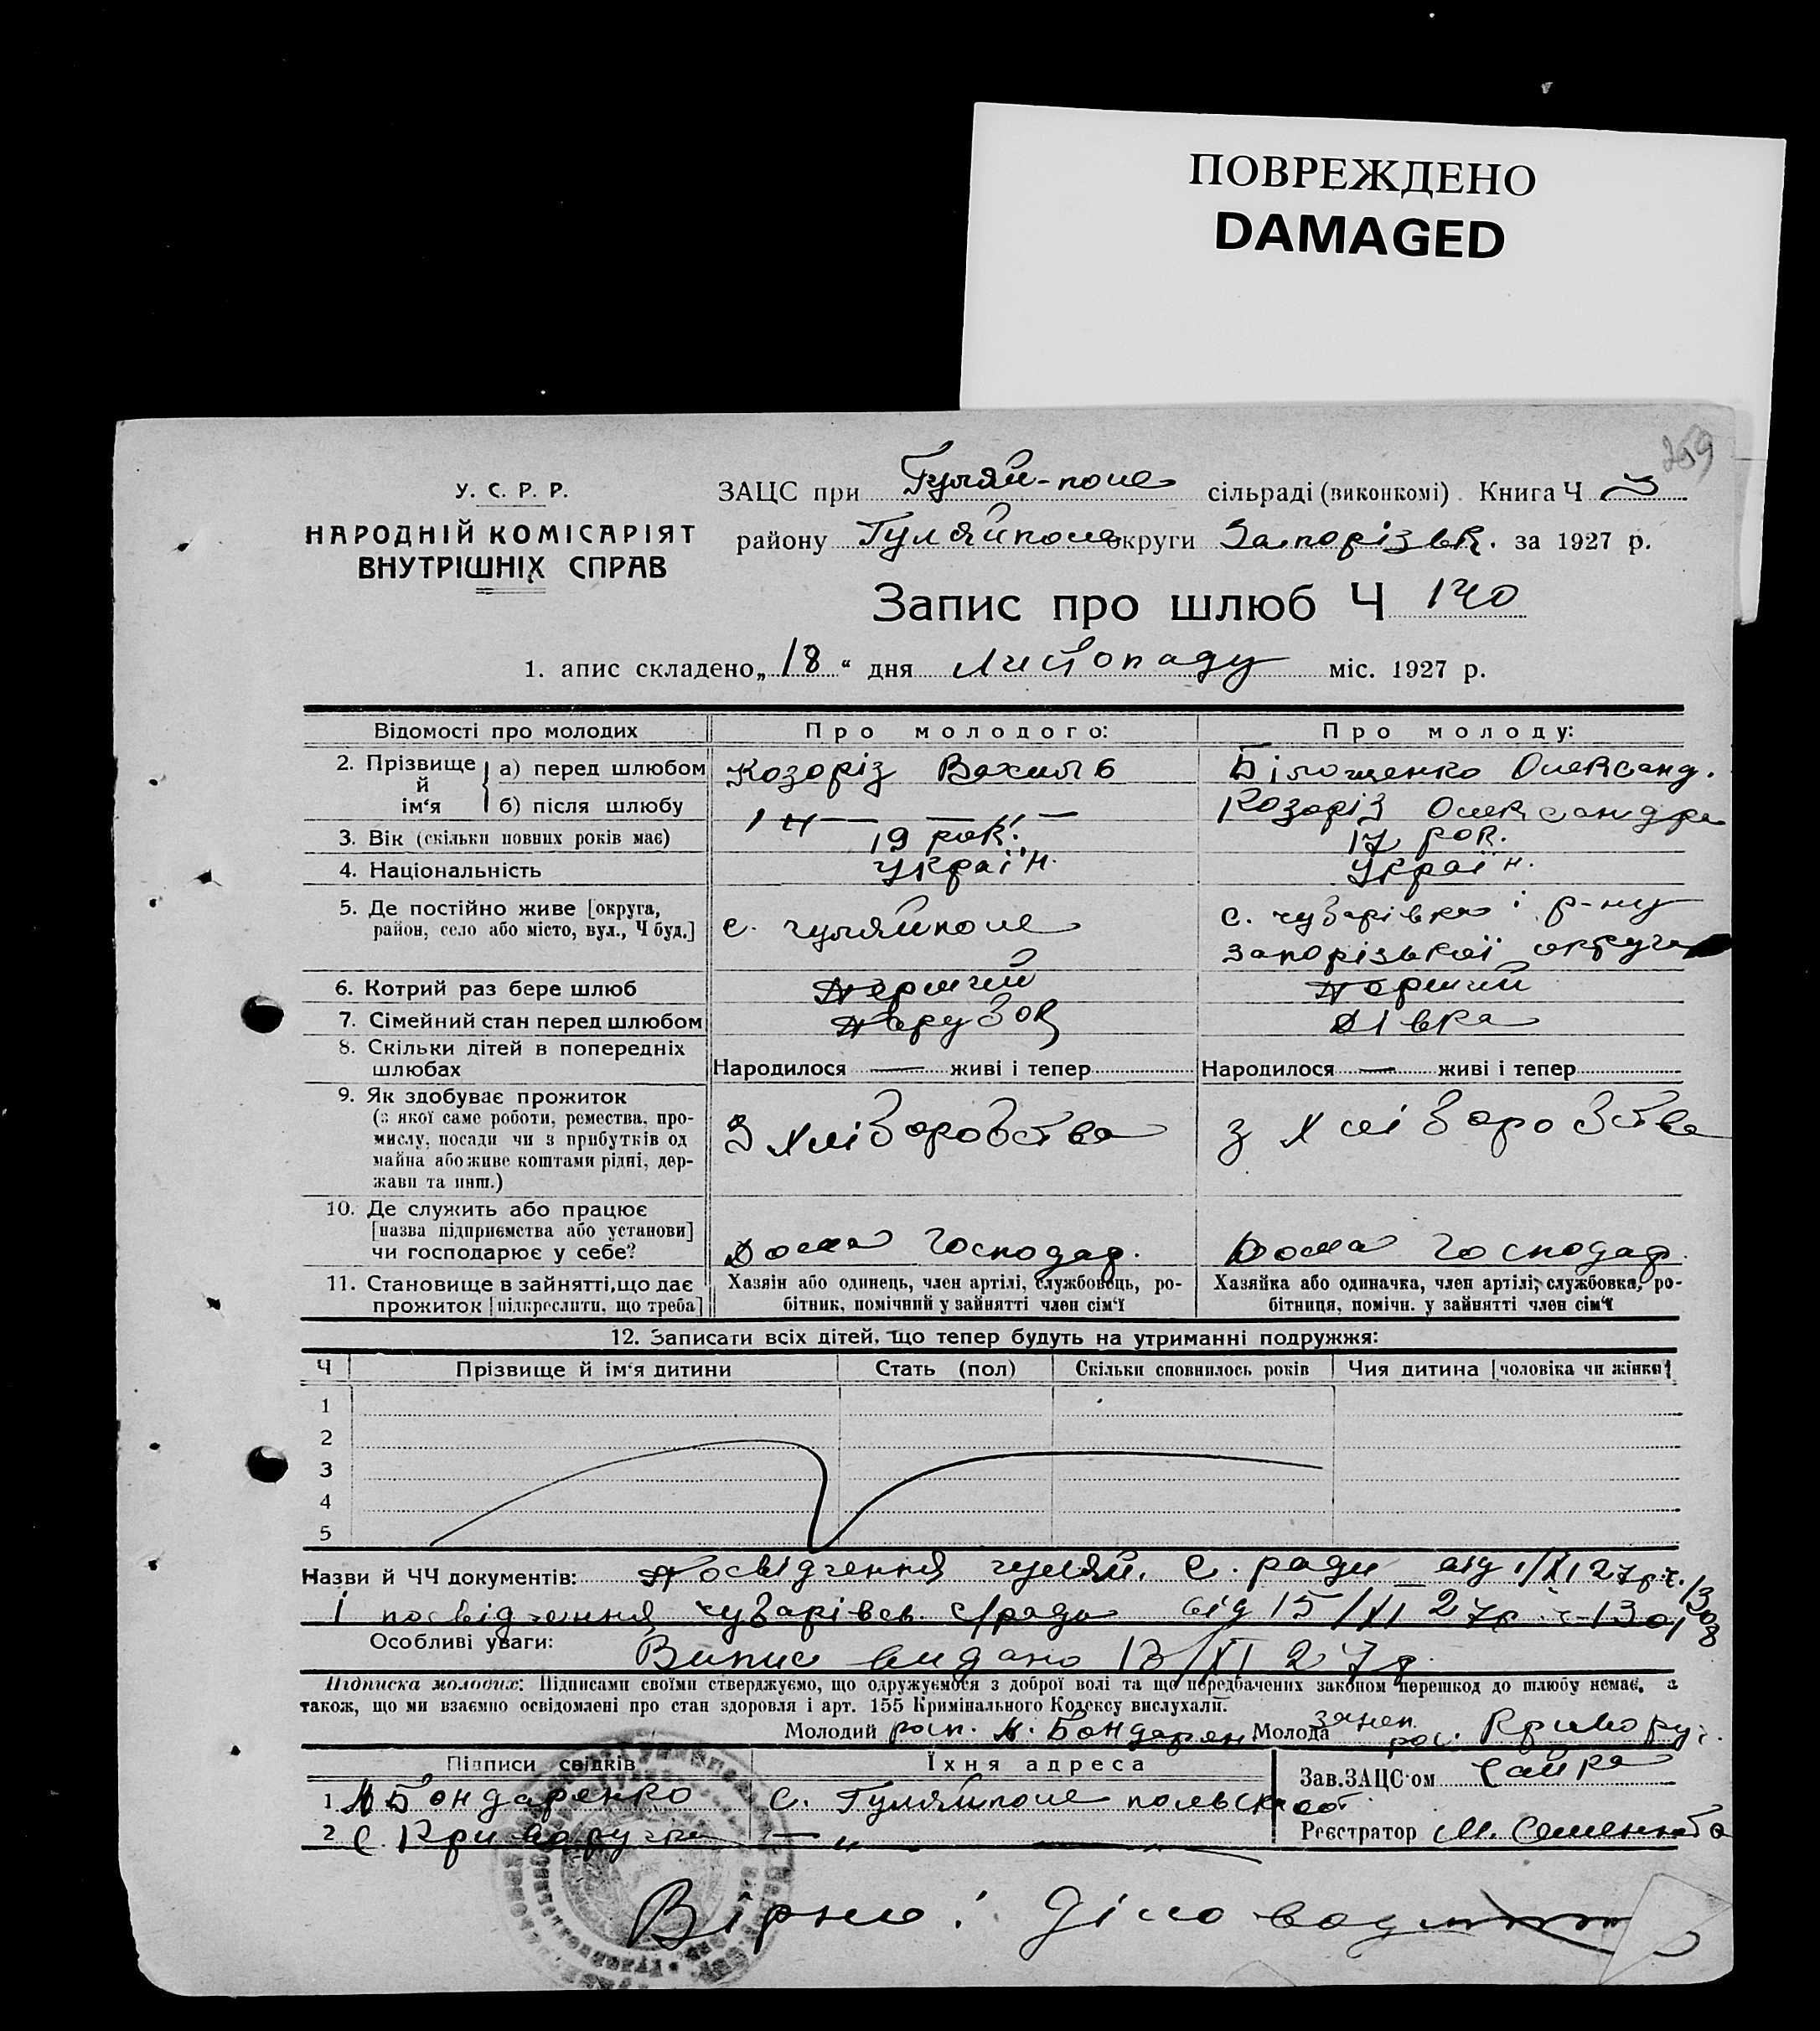 ПОВРЕЖДЕНО
DAMAGED
259
У. С. Р. Р.
НАРОДНІЙ КОМІСАРІЯТ
ВНУТРІШНІХ СПРАВ
ЗАЦС при Гуляй-поле сільраді (виконкомі) Книга Ч 3
району Гуляйполе округи Запорізьк. за 1927 р.
Запис про шлюб Ч 140
1. апис складено „18“ дня Листопаду міс. 1927 р.
Відомості про молодих
Про молодого:
Про молоду:
2. Прізвище й ім‘я
а) перед шлюбом
Козоріз Вахиль
Білощенко Олександ.
б) після шлюбу
— „ —
Козоріз Олександра
3. Вік (скільки повних років має)
19 рок.
17 рок.
4. Національність
Україн.
Україн.
5. Де постійно живе [округа,
район, село або місто, вул., Ч буд.]
с. гуляйполе
с. чубарівка і р-ну
запорізької округи
6. Котрий раз бере шлюб
Перший
Перший
7. Сімейний стан перед шлюбом
Парубок
Дівка
8. Скільки дітей в попередніх
шлюбах
Народилося — живі і тепер
Народилося — живі і тепер
9. Як здобуває прожиток
(з якої саме роботи, ремества, про-
мислу, посади чи з прибутків од
майна або живе коштами рідні, дер-
жави та инш.)
З хліборобства
з хліборобства
10. Де служить або працює
[назва підприємства або установи]
чи господарює у себе?
Дома господар.
Дома господар.
11. Становище в зайнятті, що дає
прожиток [підкреслити, що треба]
Хазяін або одинець, член артілі, службовець, ро-
бітник, помічний у зайнятті член сім‘ї
Хазяйка або одиначка, член артілі, службовка, ро-
бітниця, помічн. у зайнятті член сім‘ї
12. Записати всіх дітей, що тепер будуть на утриманні подружжя:
Ч
Прізвище й ім‘я дитини
Стать (пол)
Скільки сповнилось років
Чия дитина [чоловіка чи жінки]
1
2
3
4
5
Назви й ЧЧ документів: Посвідчення гуляй. с. ради від 1/XI 27 р. ч. 1308
і посвідчення чубарівсь. с/ради від 15/XI 27р. ч 1301
Особливі уваги: Випис видано 13/XI 27р.
Підписка молодих: Підписами своїми стверджуємо, що одружуємося з доброї волі та що передбачених законом перешкод до шлюбу немає, а
також, що ми взаємно освідомлені про стан здоровля і арт. 155 Кримінального Кодексу вислухали.
Молодий росп. Бондарен Молода занеп. рос. Криворуч.
Підписи свідків
Їхня адреса
1 Бондаренко
с. Гуляйполе
2 С. Криворучка
— „ —
Зав. ЗАЦС‘ом Сайко
Реєстратор М. Семеню
Вірно: Діловод